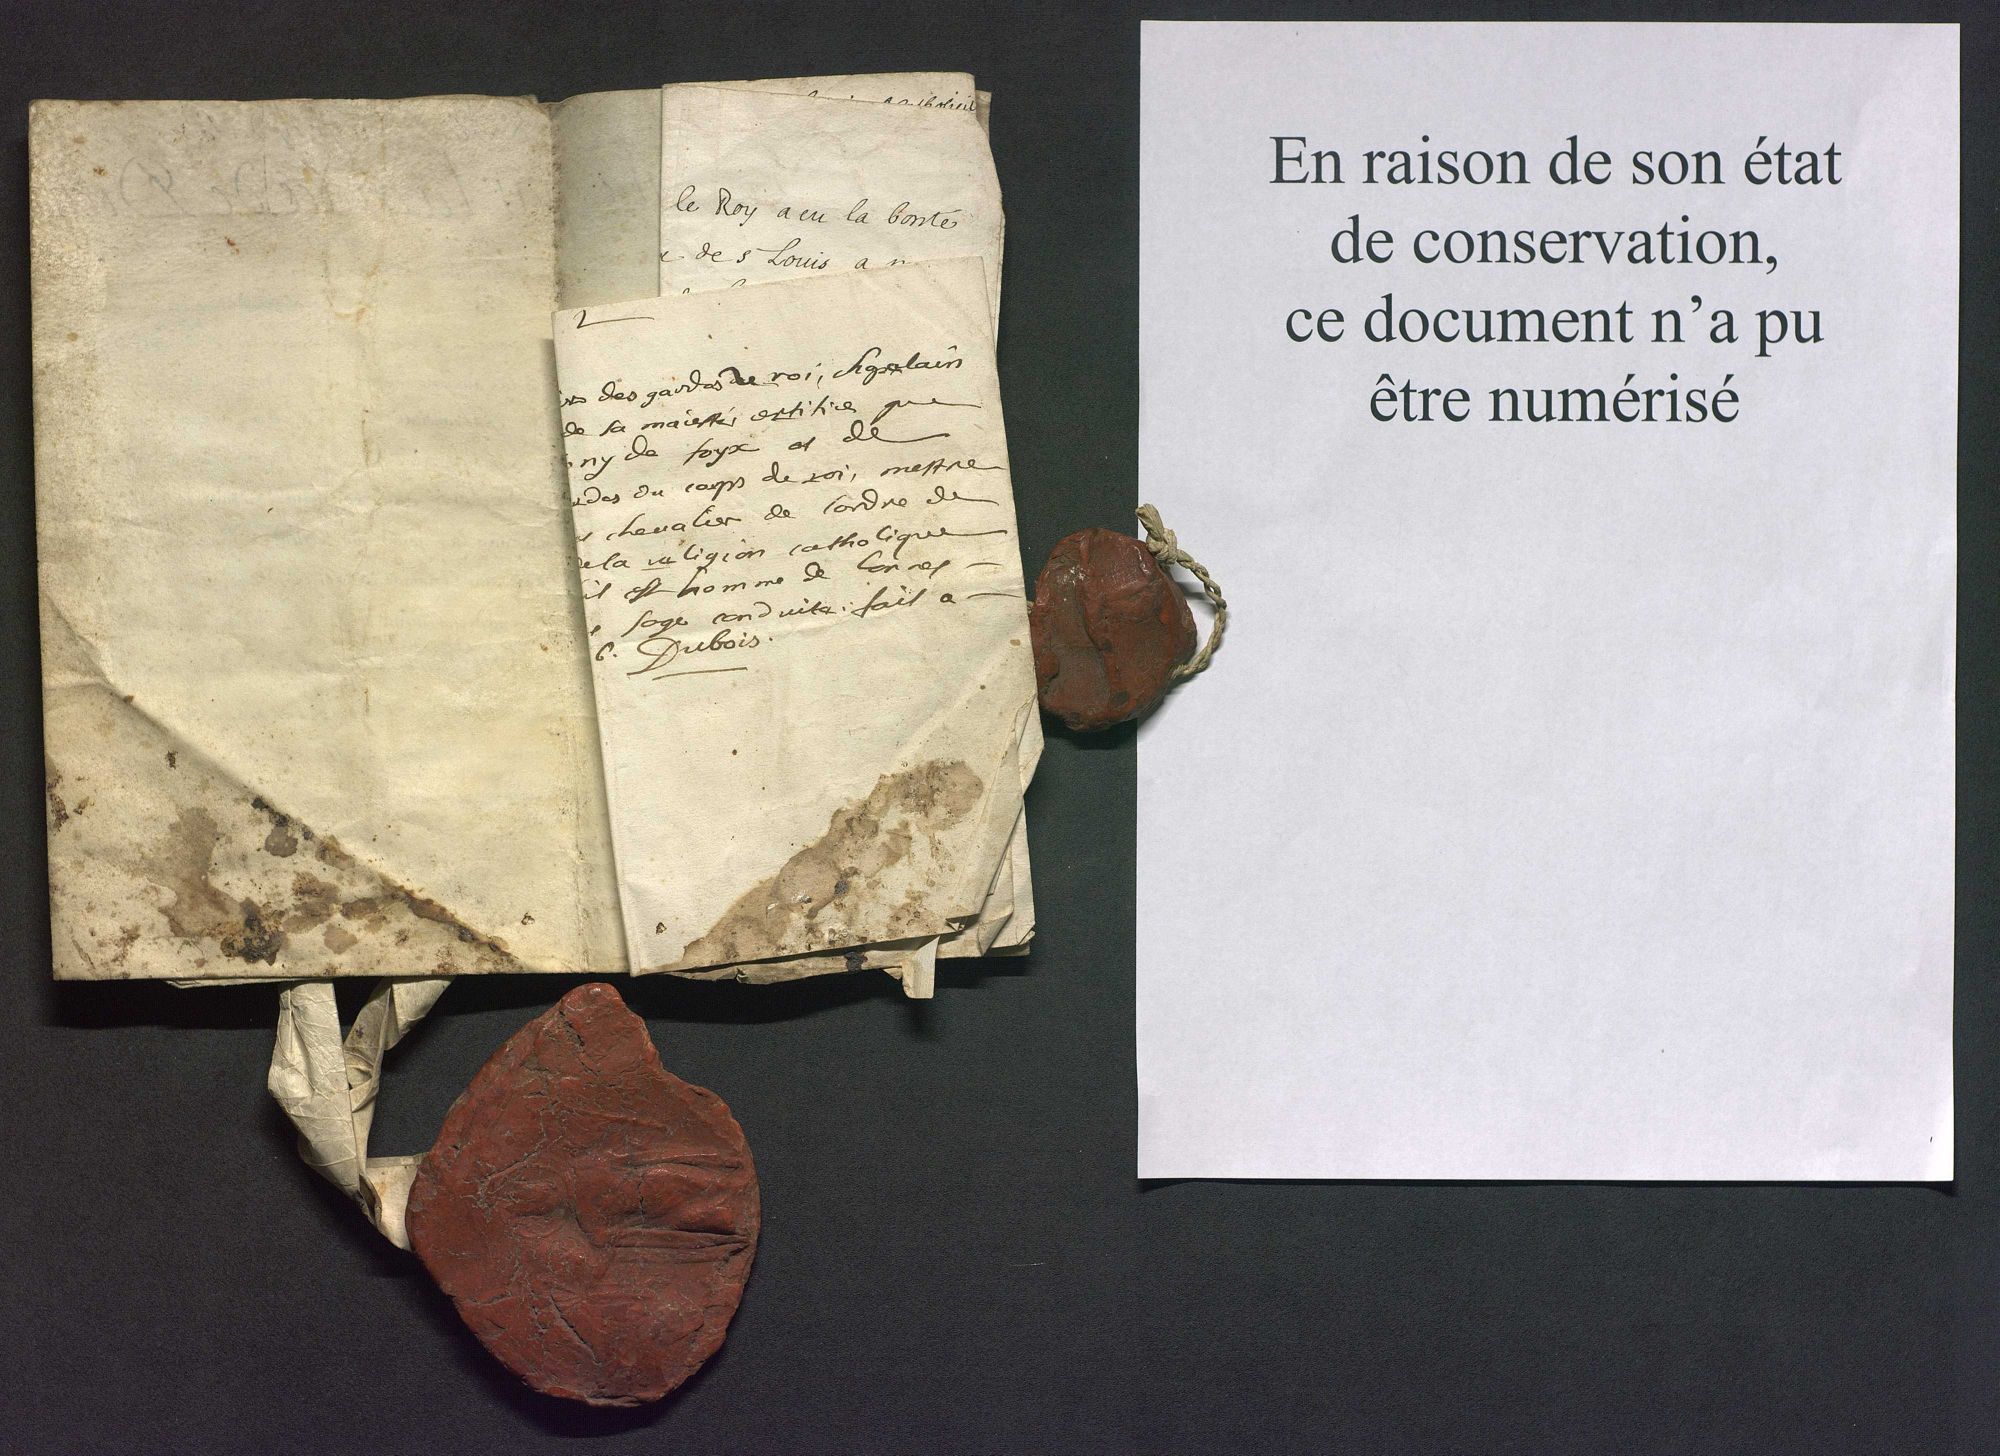 le Roy a eu la bonté
de s Louis a
2
des gardes de roi,
de sa maiesté, certifie que
ny de foyx et de
du corps de roi, mestre
chevalier de lordre de
de la religion catholique
il est homme de bonnes
sage conduite. fait a
6. Dubois.
En raison de son état
de conservation,
ce document n’a pu
être numérisé